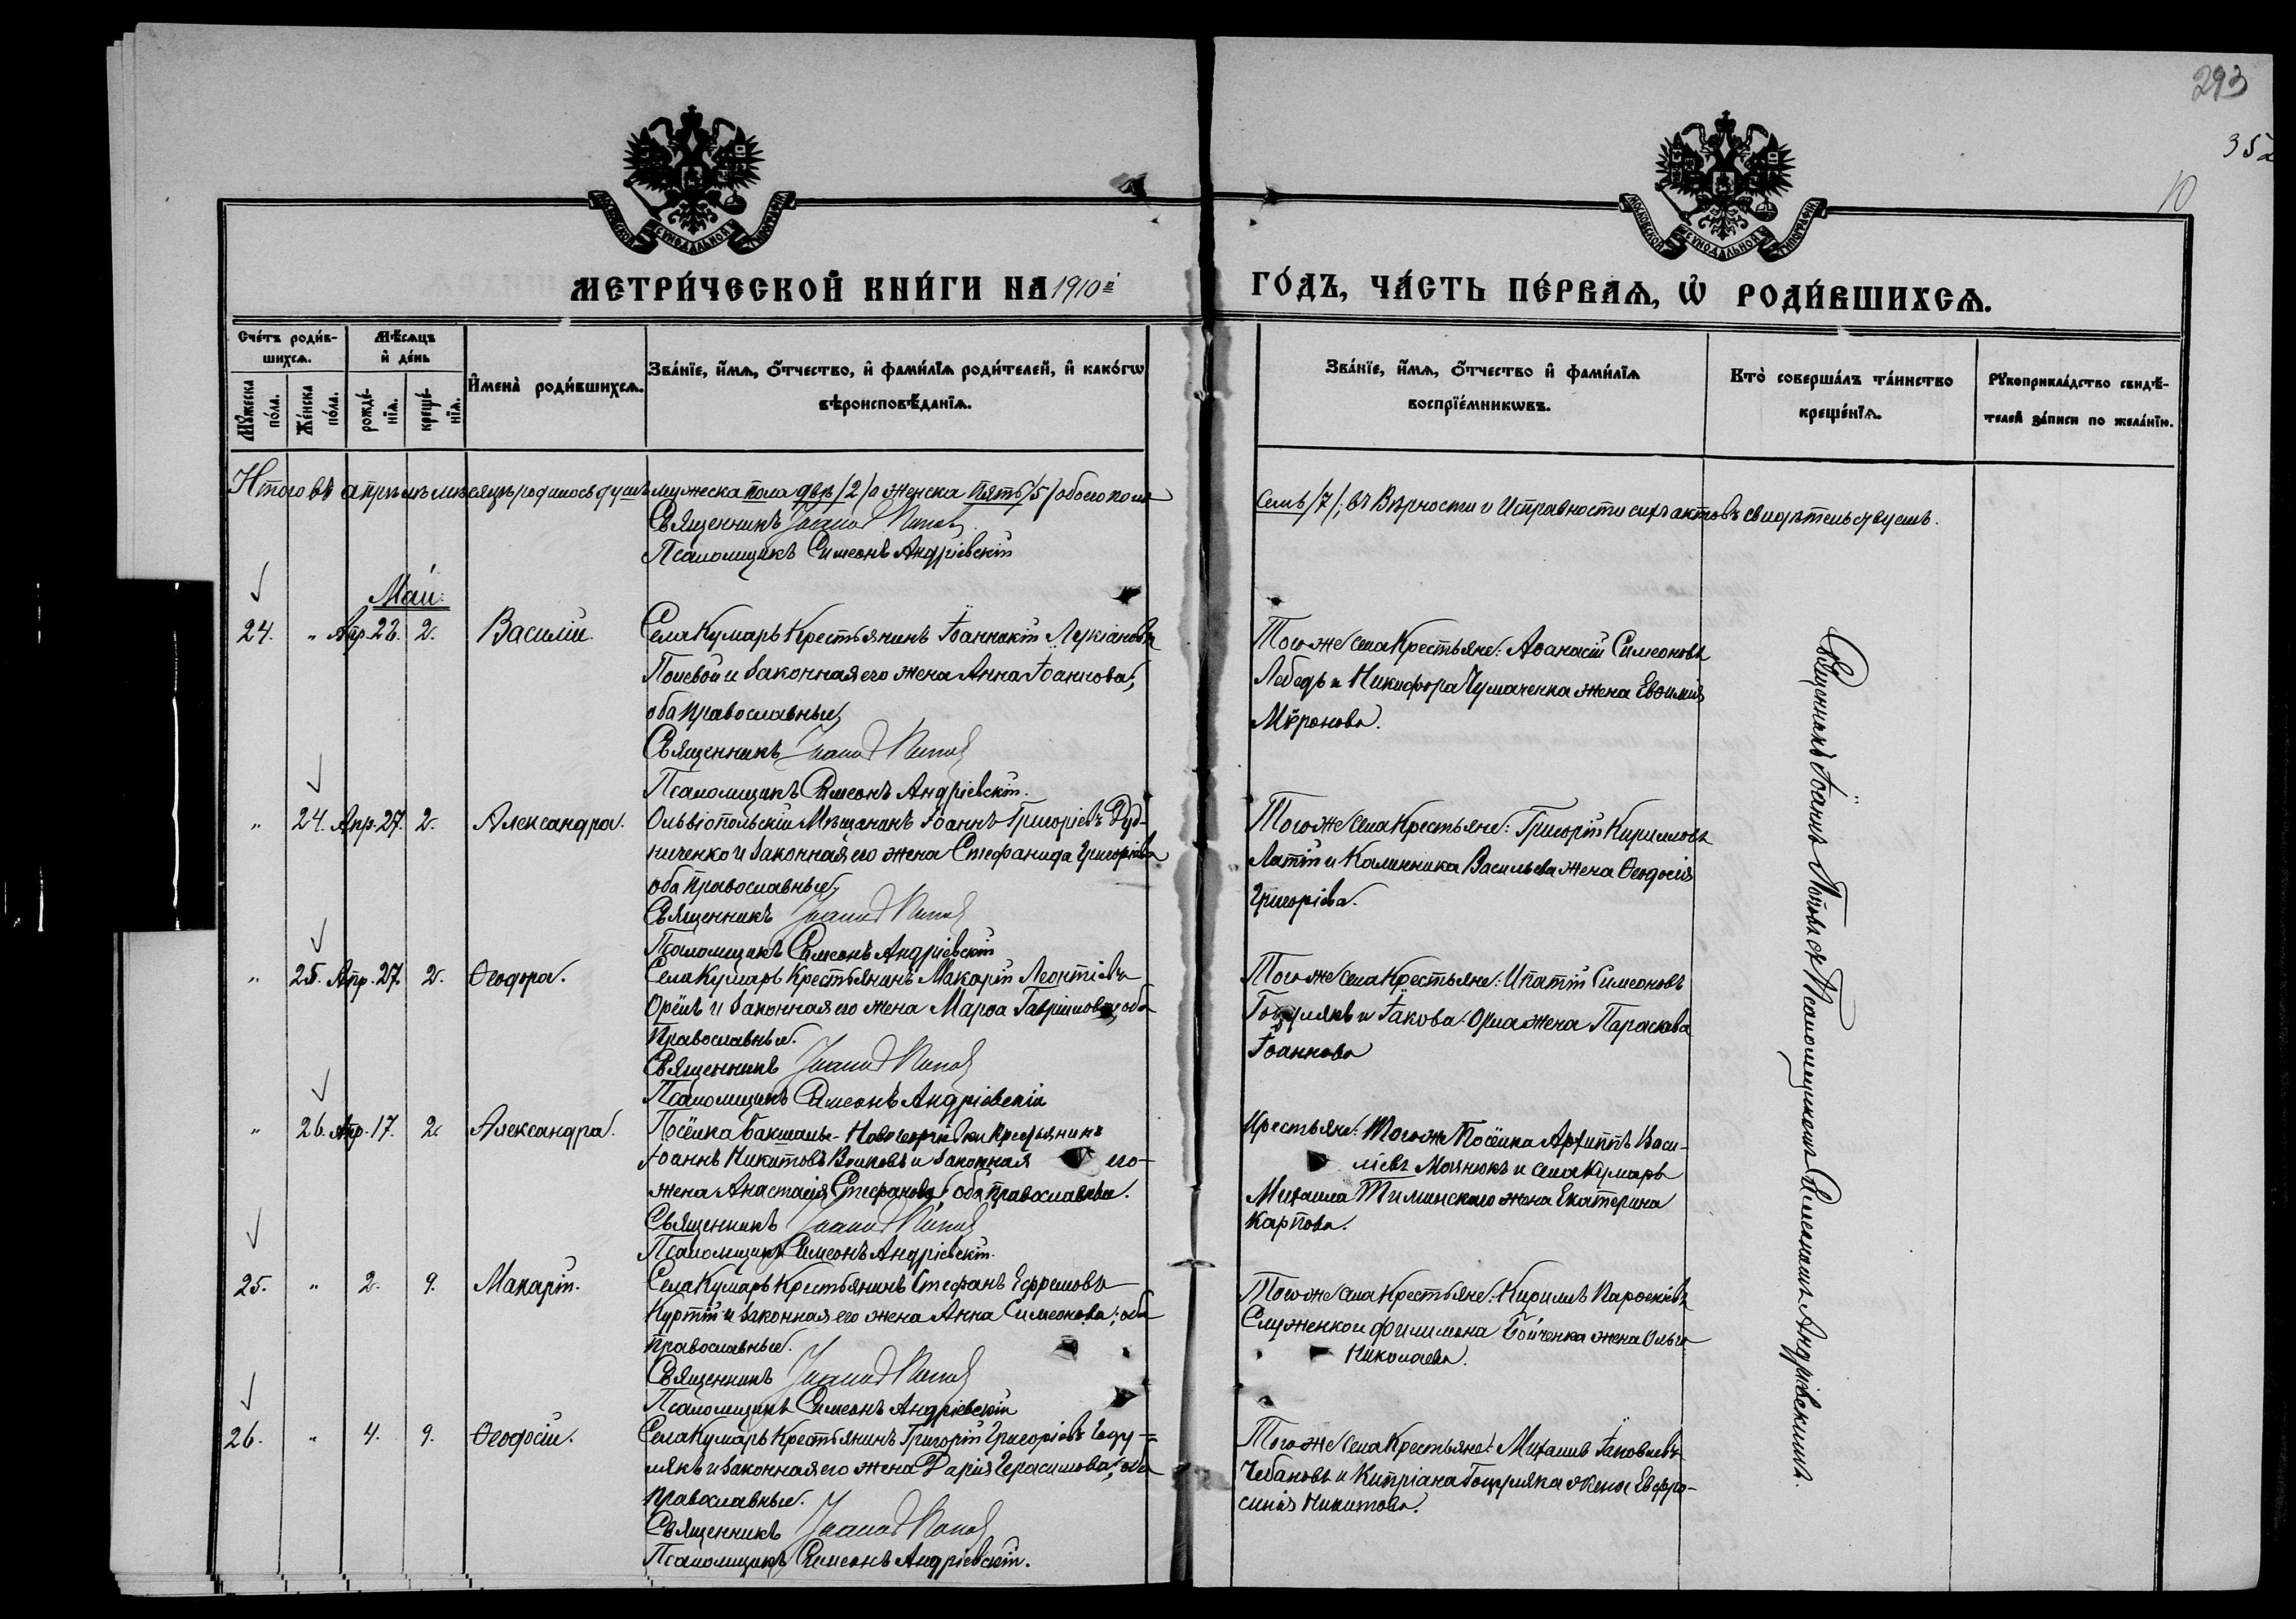 293
35
10
МОСКОВСКОЙ СѴНОДАЛЬНОЙ ТИПОГРАФІИ
МОСКОВСКОЙ СѴНОДАЛЬНОЙ ТИПОГРАФІИ
МЕТРИ́ЧЕСКОЙ КНИ́ГИ НА 1910й
ГО́ДЪ, ЧА́СТЬ ПЕ́РВАѦ, Ѡ҆ РОДИ́ВШИХСѦ.
Сче́тъ роди́в-
шихсѧ.
Мꙋ́жеска
по́ла.
Же́нска
по́ла.
Мѣ́сѧцъ
и҆ де́нь
рожде́-
нїѧ.
креще́-
нїѧ.
И҆мена̀ роди́вшихсѧ.
Зва́нїе, и҆́мѧ, ѻ҆́тчество, и҆ фами́лїѧ роди́телей, и҆ како́гѡ
вѣроисповѣ́данїѧ.
Зва́нїе, и҆́мѧ, ѻ҆́тчество и҆ фами́лїѧ
воспрїе́мникѡвъ.
Кто̀ соверша́лъ та́инство
креще́нїѧ.
Рꙋкоприкла́дство свидѣ́-
телей за́писи по жела́нїю.
Итого въ апрѣлѣ мѣсяцѣ родилось душъ мужеска пола двѣ /2/ а женска пять /5/ обоего пола
Семь /7/; въ Вѣрности и Исправности сихъ актовъ свидѣтельствуемъ.
Священникъ Іоаннъ Поповъ
Псаломщикъ Симеонъ Андріевскій
Май:
24. „ Апр. 23. 2. Василій.
Села Кумарь Крестьянинъ Іоанникій Лукіановъ
Полевой и Законная его жена Анна Іоаннова;
оба православные,
Священникъ Іоаннъ Поповъ
Псаломщикъ Симеонъ Андріевскій.
Того же Села Крестьяне: Аѳанасій Симеоновъ
Лебедь и Никифора Чумаченка жена Евѳимія
Мѵронова.
„ 24. Апр. 27. 2. Александра.
Ольвіопольскій Мѣщанинъ Іоаннъ Григоріевъ Руд-
ниченко и Законная его жена Стефанида Григоріева
оба православные,
Священникъ Іоаннъ Поповъ
Псаломщикъ Симеонъ Андріевскій
Того же Села Крестьяне: Григорій Кирилловъ
Латій и Калинника Васильева жена Ѳеодосія
Григоріева.
„ 25. Апр. 27. 2. Ѳеодора.
Села Кумарь Крестьянинъ Макарій Леонтіевъ
Орёлъ и Законная его жена Марѳа Гавриилова, оба
Православные.
Священникъ Іоаннъ Поповъ
Псаломщикъ Симеонъ Андріевскій
Того же Села Крестьяне: Ипатій Симеоновъ
и Іакова Орла жена Параскева
Іоаннова
„ 26. Апр. 17. 2. Александра.
Посёлка Бакшалы-Новогеоргіевки Крестьянинъ
Іоаннъ Никитовъ Волковъ и Законная его
жена Анастасія Стефанова; оба православные.
Священникъ Іоаннъ Поповъ
Псаломщикъ Симеонъ Андріевскій.
Крестьяне: Того же Посёлка Архиппъ Васи-
ліевъ и села Кумарь
Михаила Тилинскаго жена Екатерина
Карпова.
25. „ 2. 9. Макарій.
Села Кумарь Крестьянинъ Стефанъ Ефремовъ
Куртій и Законная его жена Анна Симеонова; оба
Православные.
Священникъ Іоаннъ Поповъ
Псаломщикъ Симеонъ Андріевскій
Того же Села Крестьяне: Кириллъ Парѳеніевъ
Служенко и Филимона Бойченка жена Ольга
Николаева.
26. „ 4. 9. Ѳеодосій.
Села Кумарь Крестьянинъ Григорій Григоріевъ
и Законная его жена Дарія Герасимова; оба
Православные.
Священникъ Іоаннъ Поповъ
Псаломщикъ Симеонъ Андріевскій.
Того же Села Крестьяне: Михаилъ Іаковлевъ
Чебановъ и Кипріана жена Евфро-
синія Никитова.
Священникъ Іоаннъ Поповъ съ Псаломщикомъ Симеономъ Андріевскимъ.